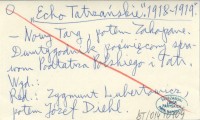 "Echo Tatrzańskie", 1918-1919.
- Nowy Targ, potem Zakopane.
Dwutygodnik poświęcony spra-
wom Podtatrza Polskiego i Tatr.
Wyd.:
Red.: Zygmunt Lubertowicz,
potem Józef Diehl.